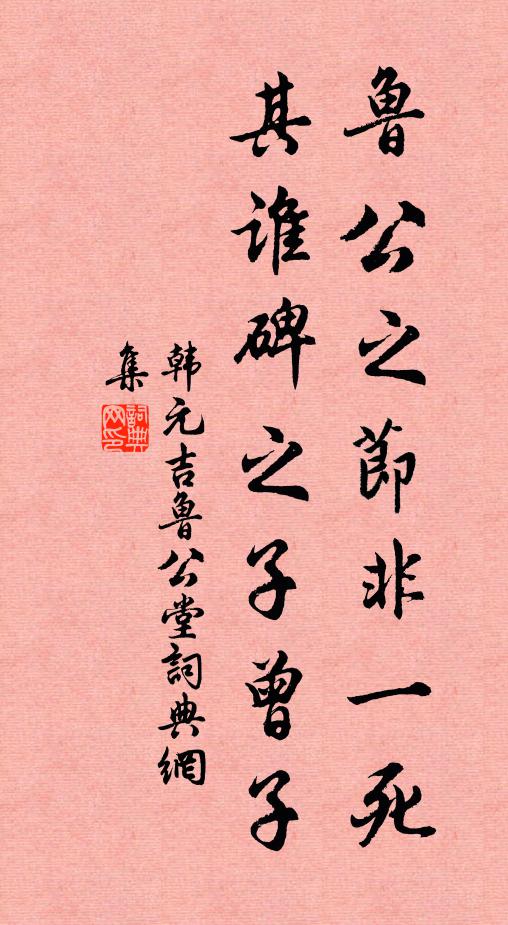 魯公之節非一死
其誰碑之子曾子
韩元吉魯公堂詞典網
集
詞典網印